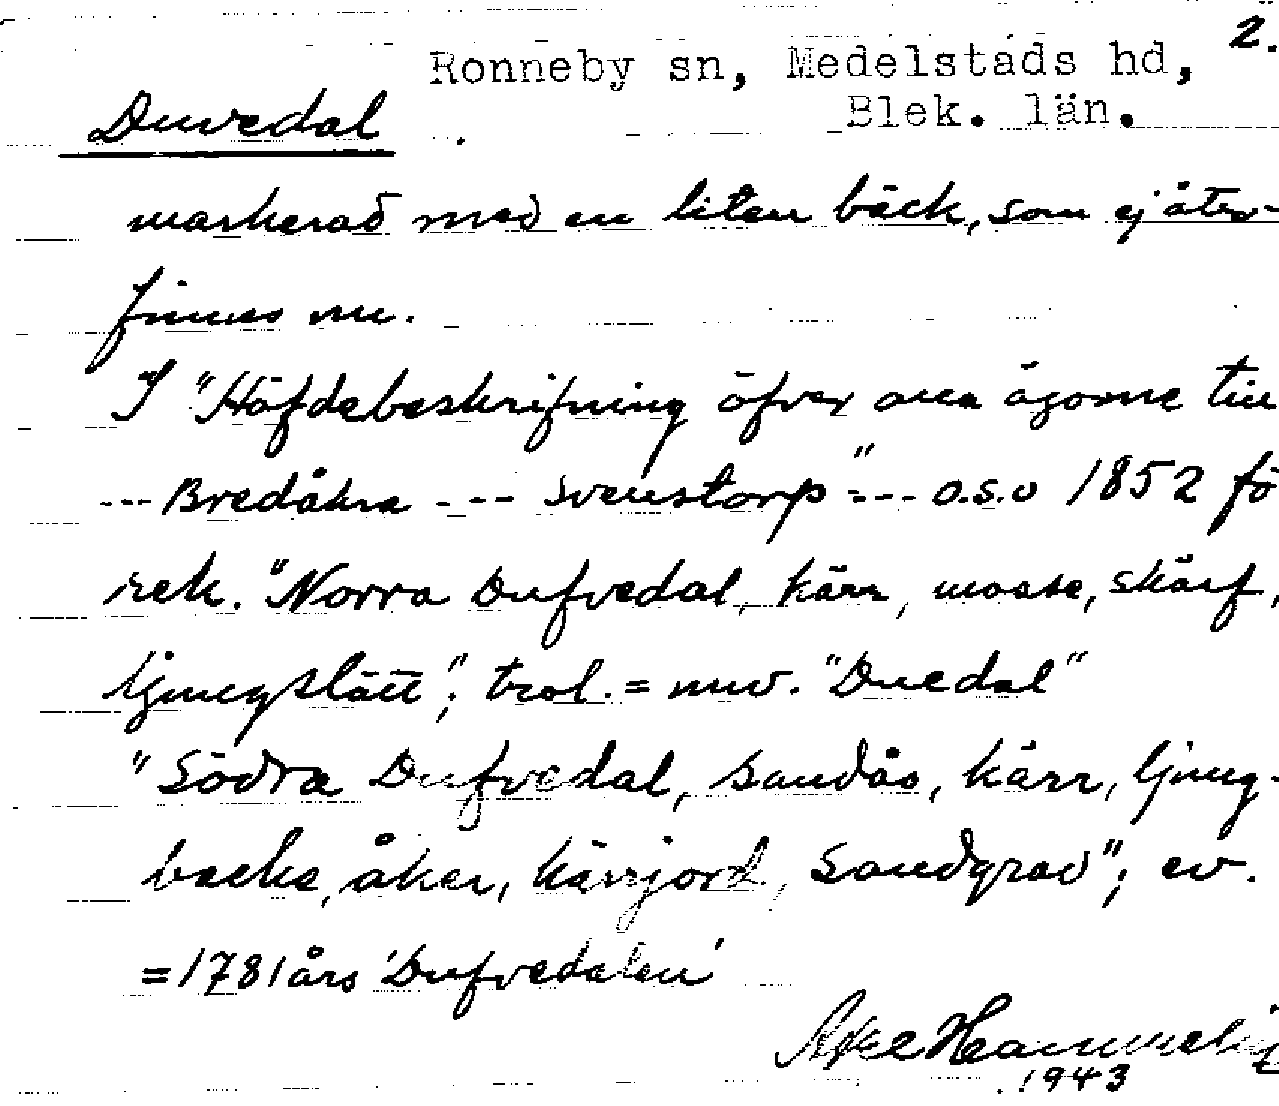 2.
Ronneby sn, Medelstads hd,
Blek. län.
Duvedal
markerad med en liten bäck, som ej åter-
finnes nu.
I "Häfdebeskrifning öfver ägorne till
--- Bredåkra --- Svenstorp" --- o.s.v 1852 fö
rek. "Norra Dufvedal, kärr, mosse, skarf,
ljungslätt"; trol. = nuv. "Duedal"
"Södra Dufvedal, sandås, kärr, ljung-
backe, åker, kärrjord, sandgrav"; ev.
= 1781 års 'Dufvedalen'
1943